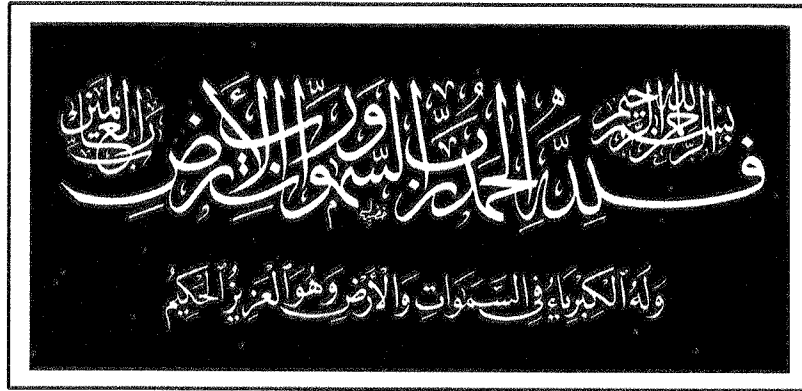 بسم الله الرحمن الرحيم
فلله الحمد رب السموات ورب الأرض رب العالمين
وَلَهُ ٱلْكِبْرِيَاءُ فِي السَّمَٰوَاتِ وَالْأَرْضِ وَهُوَ ٱلْعَزِيزُ ٱلْحَكِيمُ